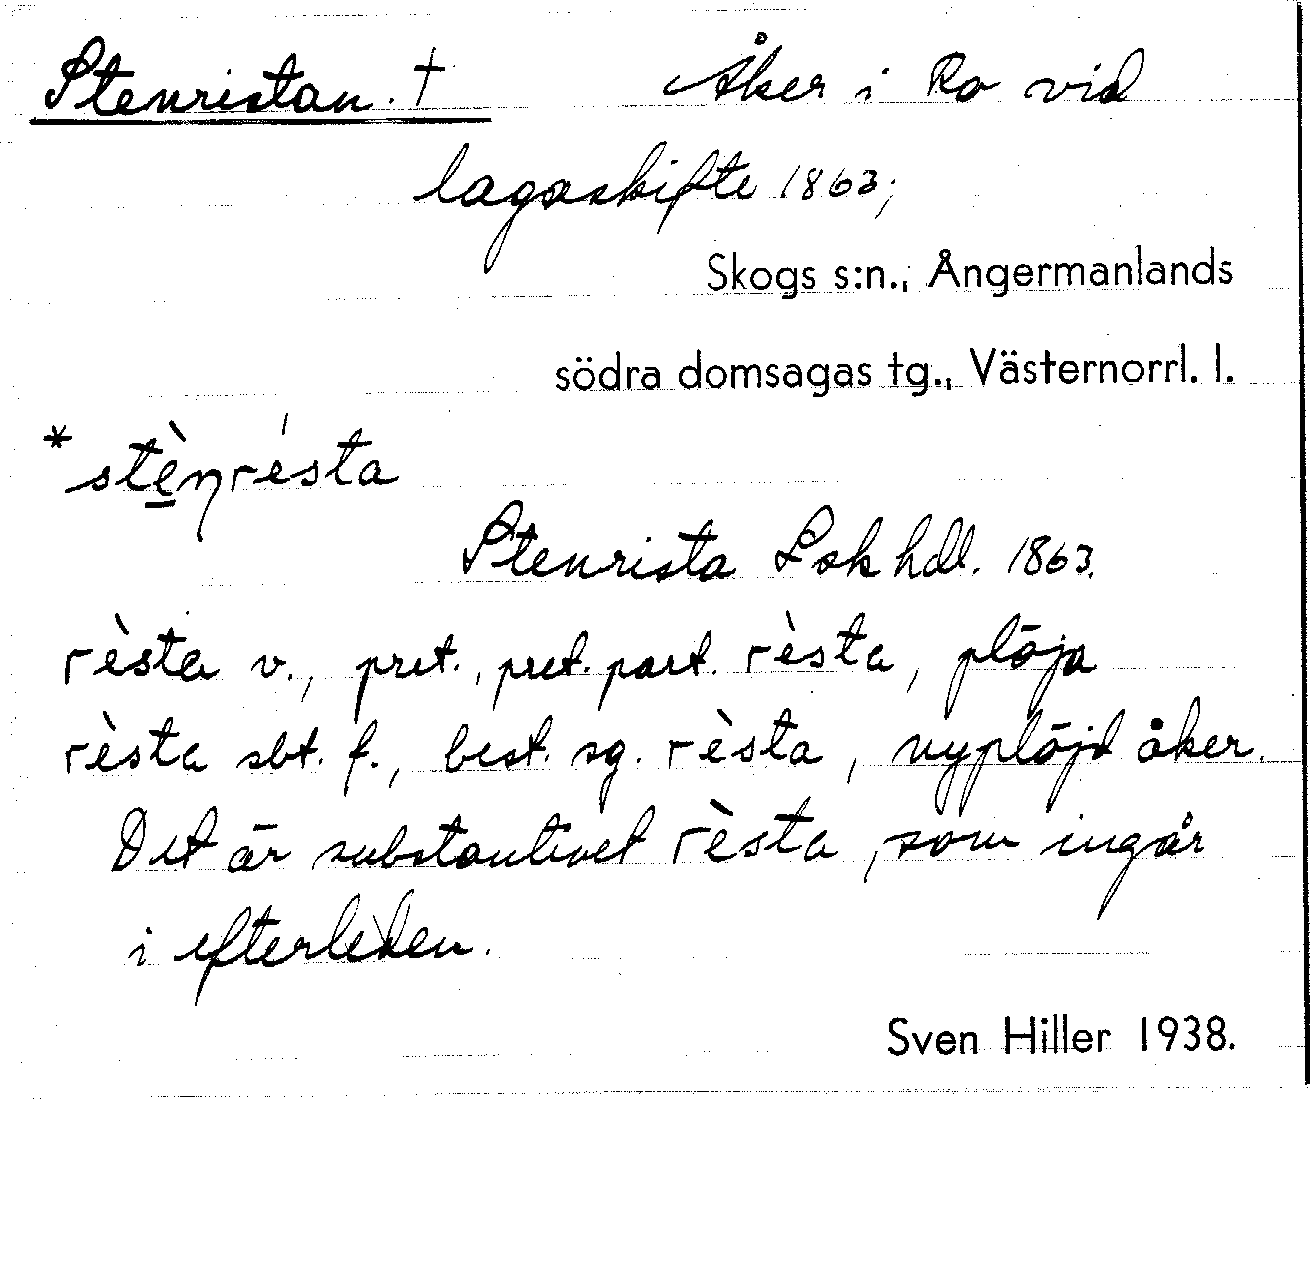 Stenristan. † Åker i Ro vid
lagaskifte 1863;
Skogs s:n., Ångermanlands
södra domsagas tg., Västernorrl. l.
*stènrésta
Stenrista Lsk hdl. 1863.
rèsta v., pret., pret. part. rèsta, plöja
rèsta sbt. f., best. sg. rèsta, nyplöjd åker.
Det är substantivet rèsta, som ingår
i efterleden.
Sven Hiller 1938.